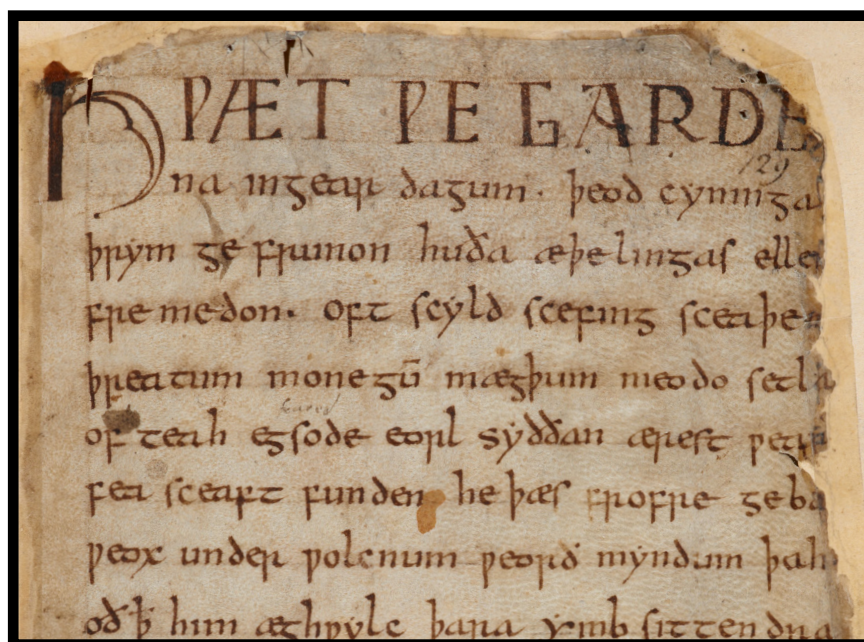 HǷÆT ǷE GARDE
na ingear dagum. þeod cyninga
þrym ge frunon huða æþelingas elle
fremedon. oft scyld scefing sceaþe
þreatum monegū mægþum meodo setla
of teah egsode eorl syððan ærest ƿea
fea sceaft funden he þæs frofre geba
ƿeox under ƿolcnum ƿeorð myndum þah
oð þ̄ him æghƿylc þara ymb sittendra
129